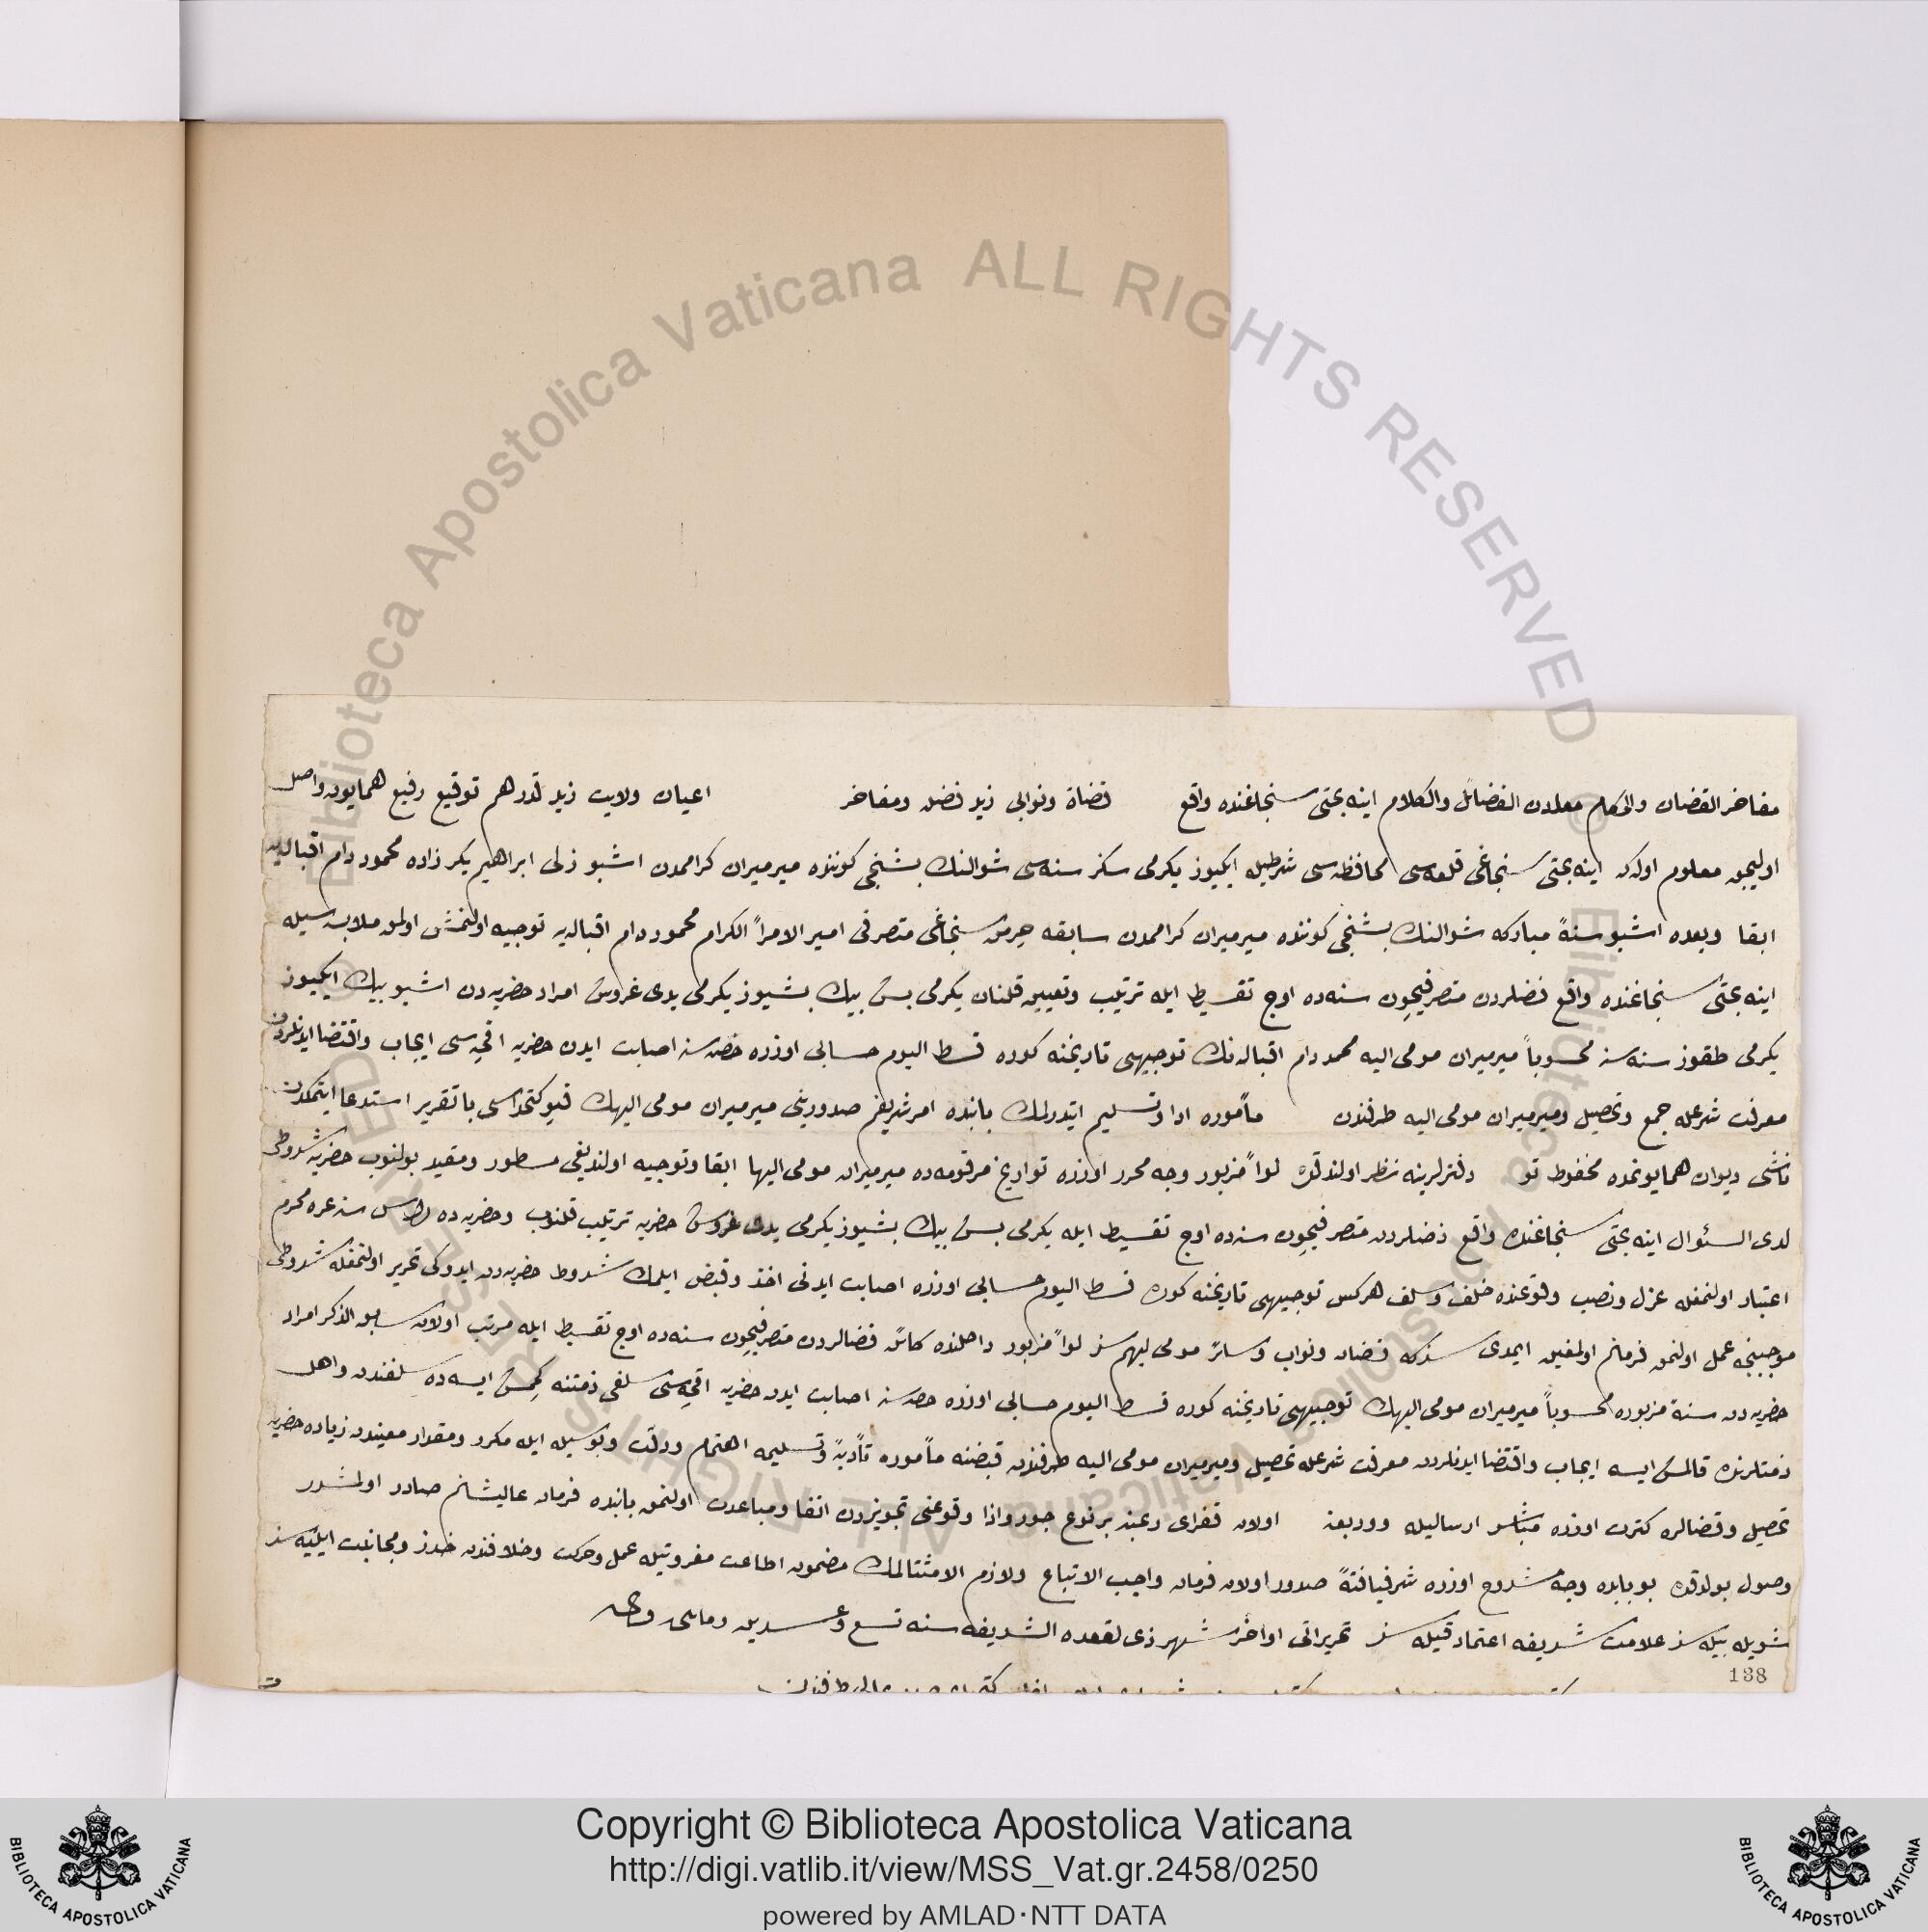 مفاخر القضات والحكام معادن الفضائل والكلام اينه بختى سنجاغنده واقع قضاة ونوابى زيد فضله ومفاخر اعيان ولايت زيد قدرهم توقيع رفيع همايون واصل
اوليجق معلوم اوله كه اينه بختى سنجاغى قلعه سى محافظه سى شرطيله ايكيوز يكرمى سكز سنه سى شوالنك بشنجى كوننده ميرميران كرامدن اشبو ابراهيم زاده محمود دام اقباله
ابقا وبعده اشبو سنهٔ مباركه شوالنك بشنجى كوننده ميرميران كرامدن سابقه سنجاغى متصرفى امير الامرأ الكرام محمود دام اقباله توجيه اولنمش اولمق ملابسه سيله
اينه بختى سنجاغنده واقع قضلردن متصرفيچون سنه ده اوچ تقسيط ايله ترتيب وتعيين قلنان يكرمى بش بيك بشيوز يكرمى يدى غروش امداد حضريه دن اشبو بيك ايكيوز
يكرمى طقوز سنه سنه محسوباً ميرميران مومى اليه محمد دام اقباله نك توجيهى تاريخنه كوره قسط اليوم حسابى اوزره حصه سنه اصابت ايدن حضريه اقچه سى ايجاب واقتضا ايدنلردن
معرفت شرعله جمع وتحصيل وميرميران مومى اليه طرفندن مأموره ادا وتسليم ايتدرلمك بابنده امر شريفم صدورينى ميرميران مومى اليهك قپوكتخداسى با تقرير استدعا ايتمكدن
ناشى ديوان همايونمده محفوظ دفترلرينه نظر اولندقده لوأ مزبور وجه محرر اوزره تواريخ مرقومه ده ميرميران مومى اليها ابقا وتوجيه اولنديغى مسطور ومقيد بولنوب حضريه شروطى
لدى السئوال اينه بختى سنجاغنك واقع قضلردن متصرفيچون سنه ده اوچ تقسيط ايله يكرمى بش بيك بشيوز يكرمى يدى غروش حضريه ترتيب قلنوب وحضريه ده راس سنه غره محرم
اعتبار اولنمغله عزل ونصب وقوعنده خلف وسلف هركس توجيهى تاريخنه كوره قسط اليوم حسابى اوزره اصابت ايدنى اخذ وقبض ايلمك شروط حضريه دن ايدوكى تحرير اولنمغله شروطى
موجبنجه عمل اولنمق فرمانم اولمغين ايمدى سزكه قضات ونواب وسائر مومى ليهم سز لوأ مزبور داخلنده كائن قضالردن متصرفيچون سنه ده اوچ تقسيط ايله مرتب اولان سابق الذكر امداد
حضريه دن سنهٔ مزبوره محسوباً ميرميران مومى اليهك توجيهى تاريخنه كوره قسط اليوم حسابى اوزره حصه سنه اصابت ايدن حضريه اقچه سى سلفى ذمتنه كچمش ايسه ده سلفندن واهل
ذمتلرنده قالمش ايسه ايجاب واقتضا ايدنلردن معرفت شرعله تحصيل وميرميران مومى اليه طرفندن قبضنه مأموره تأديه وتسليمه اهتمام ودقت وبو وسيله ايله مكرر ومقدار معيندن زياده حضريه
تحصيل وقضالره كثرت اوزره مباشر ارساليله ووديعة اولان فقراى رعيته برنوع جور واذا وقوعنى تجويزدن اتقا ومباعدت اولنمق بابنده فرمان عاليشانم صادر اولمشدر
وصول بولدقده بو بابده وجه مشروح اوزره شرفيافتهٔ صدور اولان فرمان واجب الاتباع ولازم الامتثالمك مضمون اطاعت مقرونيله عمل وحركت وخلافندن حذر ومجانبت ايليه سز
شويله بيله سز علامت شريفه اعتماد قيله سز تحريراتى اواخر شهر ذى القعده الشريفه سنه تسع وعشرين ومائتين والف
138
© Biblioteca Apostolica Vaticana ALL RIGHTS RESERVED
Copyright © Biblioteca Apostolica Vaticana
http://digi.vatlib.it/view/MSS_Vat.gr.2458/0250
powered by AMLAD·NTT DATA
BIBLIOTECA APOSTOLICA VATICANA
BIBLIOTECA APOSTOLICA VATICANA